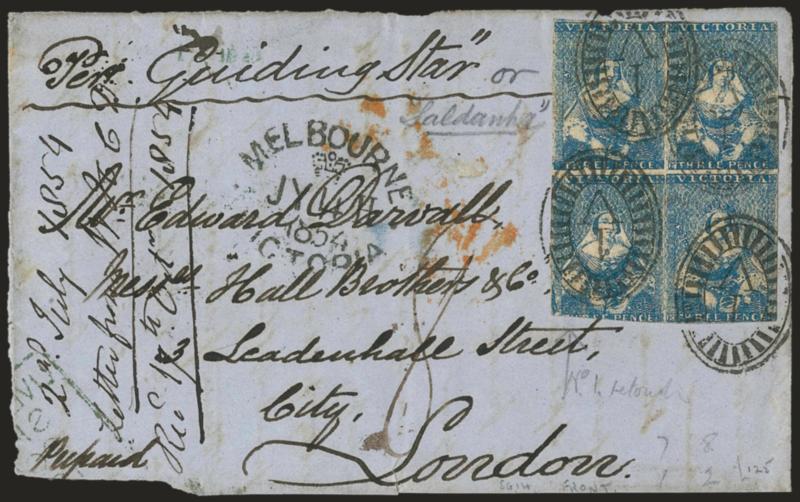 Per "Guiding Star" or
"Saldanha"
VICTORIA
VICTORIA
THREE PENCE
THREE PENCE
THREE PENCE
THREE PENCE
MELBOURNE
JY
1854
VICTORIA
Mr. Edward Darvall,
Messrs Hall Brothers & Co.
3 Leadenhall Street,
City,
London.
Prepaid
2d. July 1854
Letter from
Rec 17th 1854
No 1. retouch
7 8
1 2
£125
SG14 FRONT